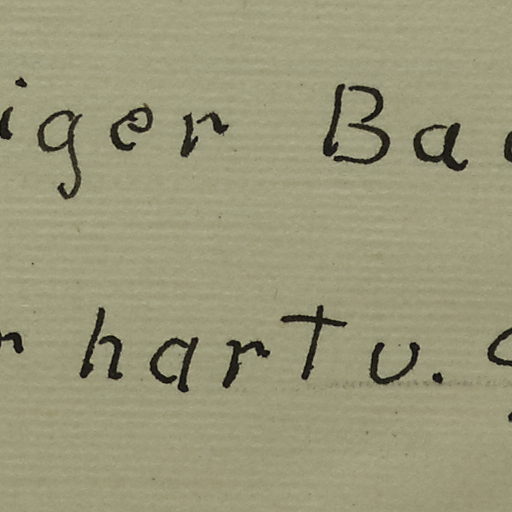 iger Ba
r hart u.